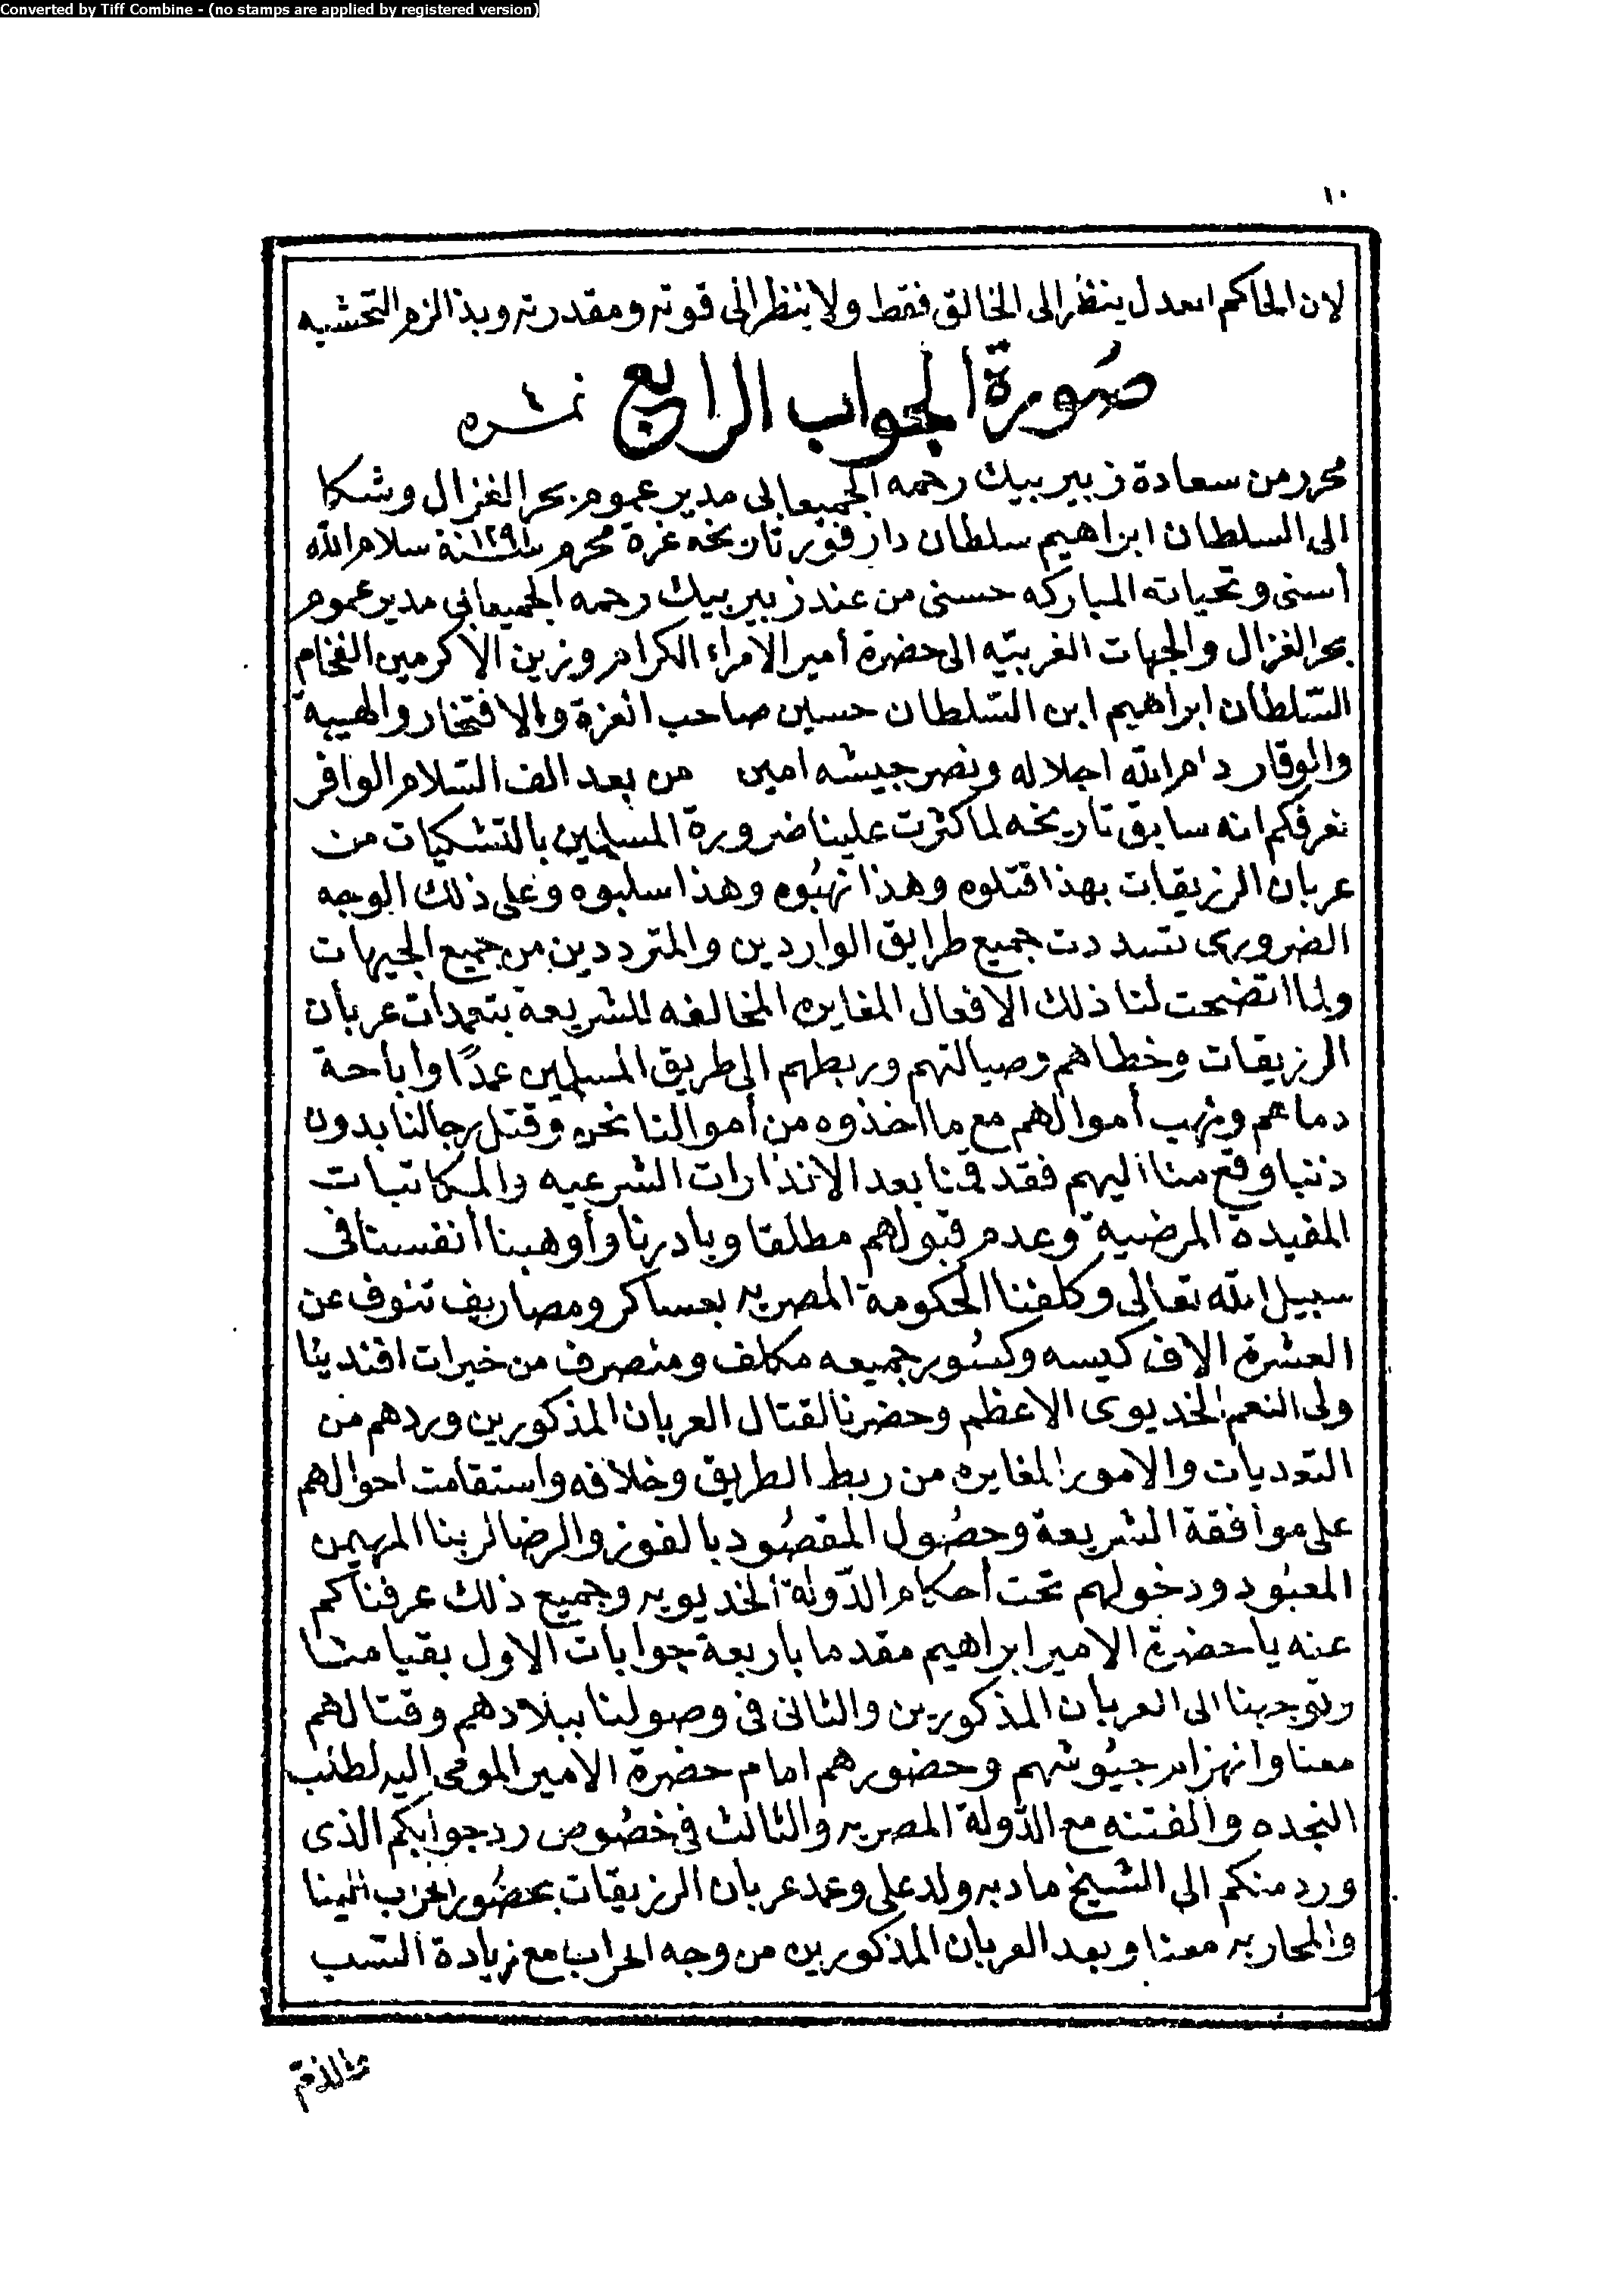 Converted by Tiff Combine - (no stamps are applied by registered version)
١٠
لان الحاكم اعدل ينظر الى الخالق فقط ولا ينظر الى قوته ومقدرته وبذا لزم التحشيه
صُورة الجواب الرابع نمره ٤
محرر من سعادة زبير بيك رحمه الجميعابى مدير عموم بحر الغزال وشكا
الى السلطان ابراهيم سلطان دارفور تاريخه غرة محرم سنة ١٢٩١ سلام الله
أسنى وتحياته المباركه حسنى من عند زبير بيك رحمه الجميعابى مدير عموم
بحر الغزال والجهات الغربيّه الى حضرة أمير الامراء الكرام وزين الاكرمين الفخام
السّلطان ابراهيم ابن السّلطان حسين صاحب العزة والافتخار والهيبة
والوقار دام الله اجلاله ونصر جيشه امين من بعد الف السّلام الوافر
نعرفكم انه سابق تاريخه لما كثرت علينا ضرورة المسلمين بالتشكيات من
عربان الرزيقات بهذا قتلوه وهذا نهبُوه وهذا سلبوه وعلى ذلك الوجه
الضرورى تسددت جميع طرايق الواردين والمترددين من جميع الجيهات
ولما اتضحت لنا ذلك الافعال المغايره المخالفه للشريعة بتعمدات عربان
الرزيقات وخطاهم وصيالتهم وربطهم الى طريق المسلمين عمدًا واباحة
دماهم ونهب أموالهم مع ما اخذوه من أموالنا نحن وقتل رجالنا بدون
ذنبا وقع منا اليهم فقد قمنا بعد الانذارات الشرعيه والمكاتبات
المفيدة المرضية وعدم قبولهم مطلقا وبادرنا وأوهبنا أنفسنا فى
سبيل الله تعالى وكلفنا الحكومة المصريه بعساكر ومصاريف تنوف عن
العشرة الاف كيسه وكسُور جميعه مكلف ومنصرف من خيرات افندينا
ولى النعم الخديوى الاعظم وحضرنا لقتال العربان المذكورين وردهم من
التعديات والامور المغايره من ربط الطريق وخلافه واستقامت احوالهم
على موافقة الشريعة وحصُول المقصُود بالفوز والرضا لربنا المهيمن
المعبُود ودخولهم تحت أحكام الدّولة الخديويه وجميع ذلك عرفناكم
عنه يا حضرة الامير ابراهيم مقدما باربعة جوابات الاول بقيامنا
وتوجهنا الى العربان المذكورين والثانى فى وصولنا ببلادهم وقتالهم
معنا وانهزام جيُوشهم وحضورهم امام حضرة الامير المومى اليه لطلب
النجده والفتنه مع الدّولة المصريه والثالث فى خصُوص رد جوابكم الذى
ورد منكم الى الشيخ مادبه ولد على وعمد عربان الرزيقات بحضُور الحراب الينا
والمحاربه معنا وبعد العربان المذكورين من وجه الحراب مع زيادة السّب